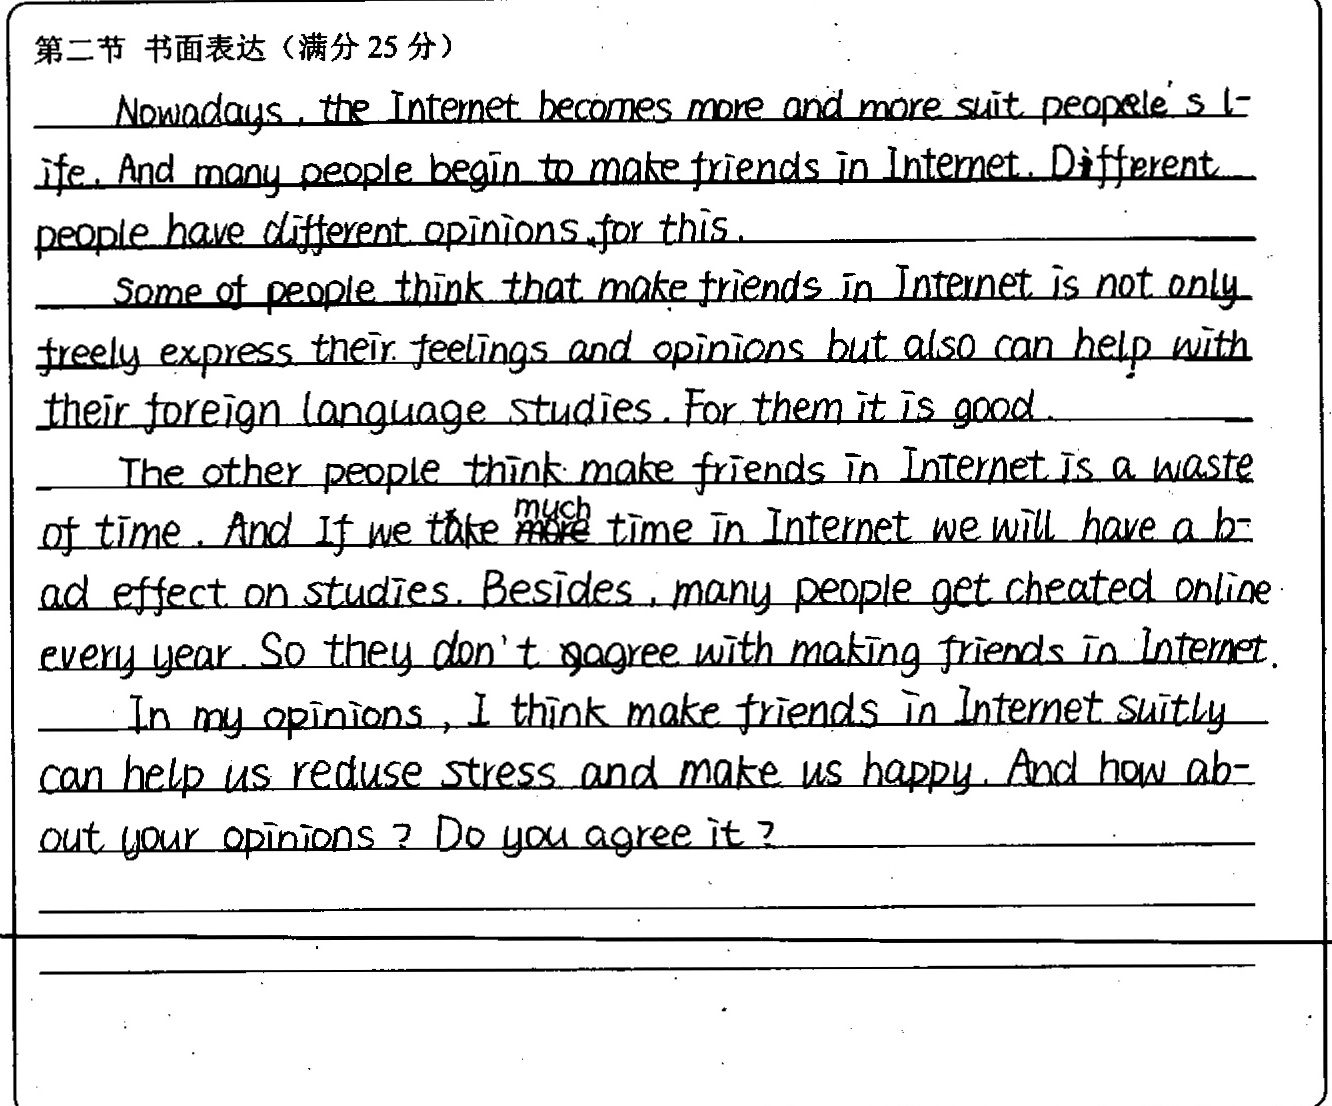 第二节 书面表达（满分 25 分）
Nowadays, the Internet becomes more and more suit peopele's l-
ife. And many people begin to make friends in Internet. Different
people have different opinions for this.
Some of people think that make friends in Internet is not only
freely express their feelings and opinions but also can help with
their foreign language studies. For them it is good.
The other people think make friends in Internet is a waste
of time. And If we take much time in Internet we will have a b-
ad effect on studies. Besides, many people get cheated online
every year. So they don't agree with making friends in Internet.
In my opinions, I think make friends in Internet suitly
can help us reduse stress and make us happy. And how ab-
out your opinions? Do you agree it?